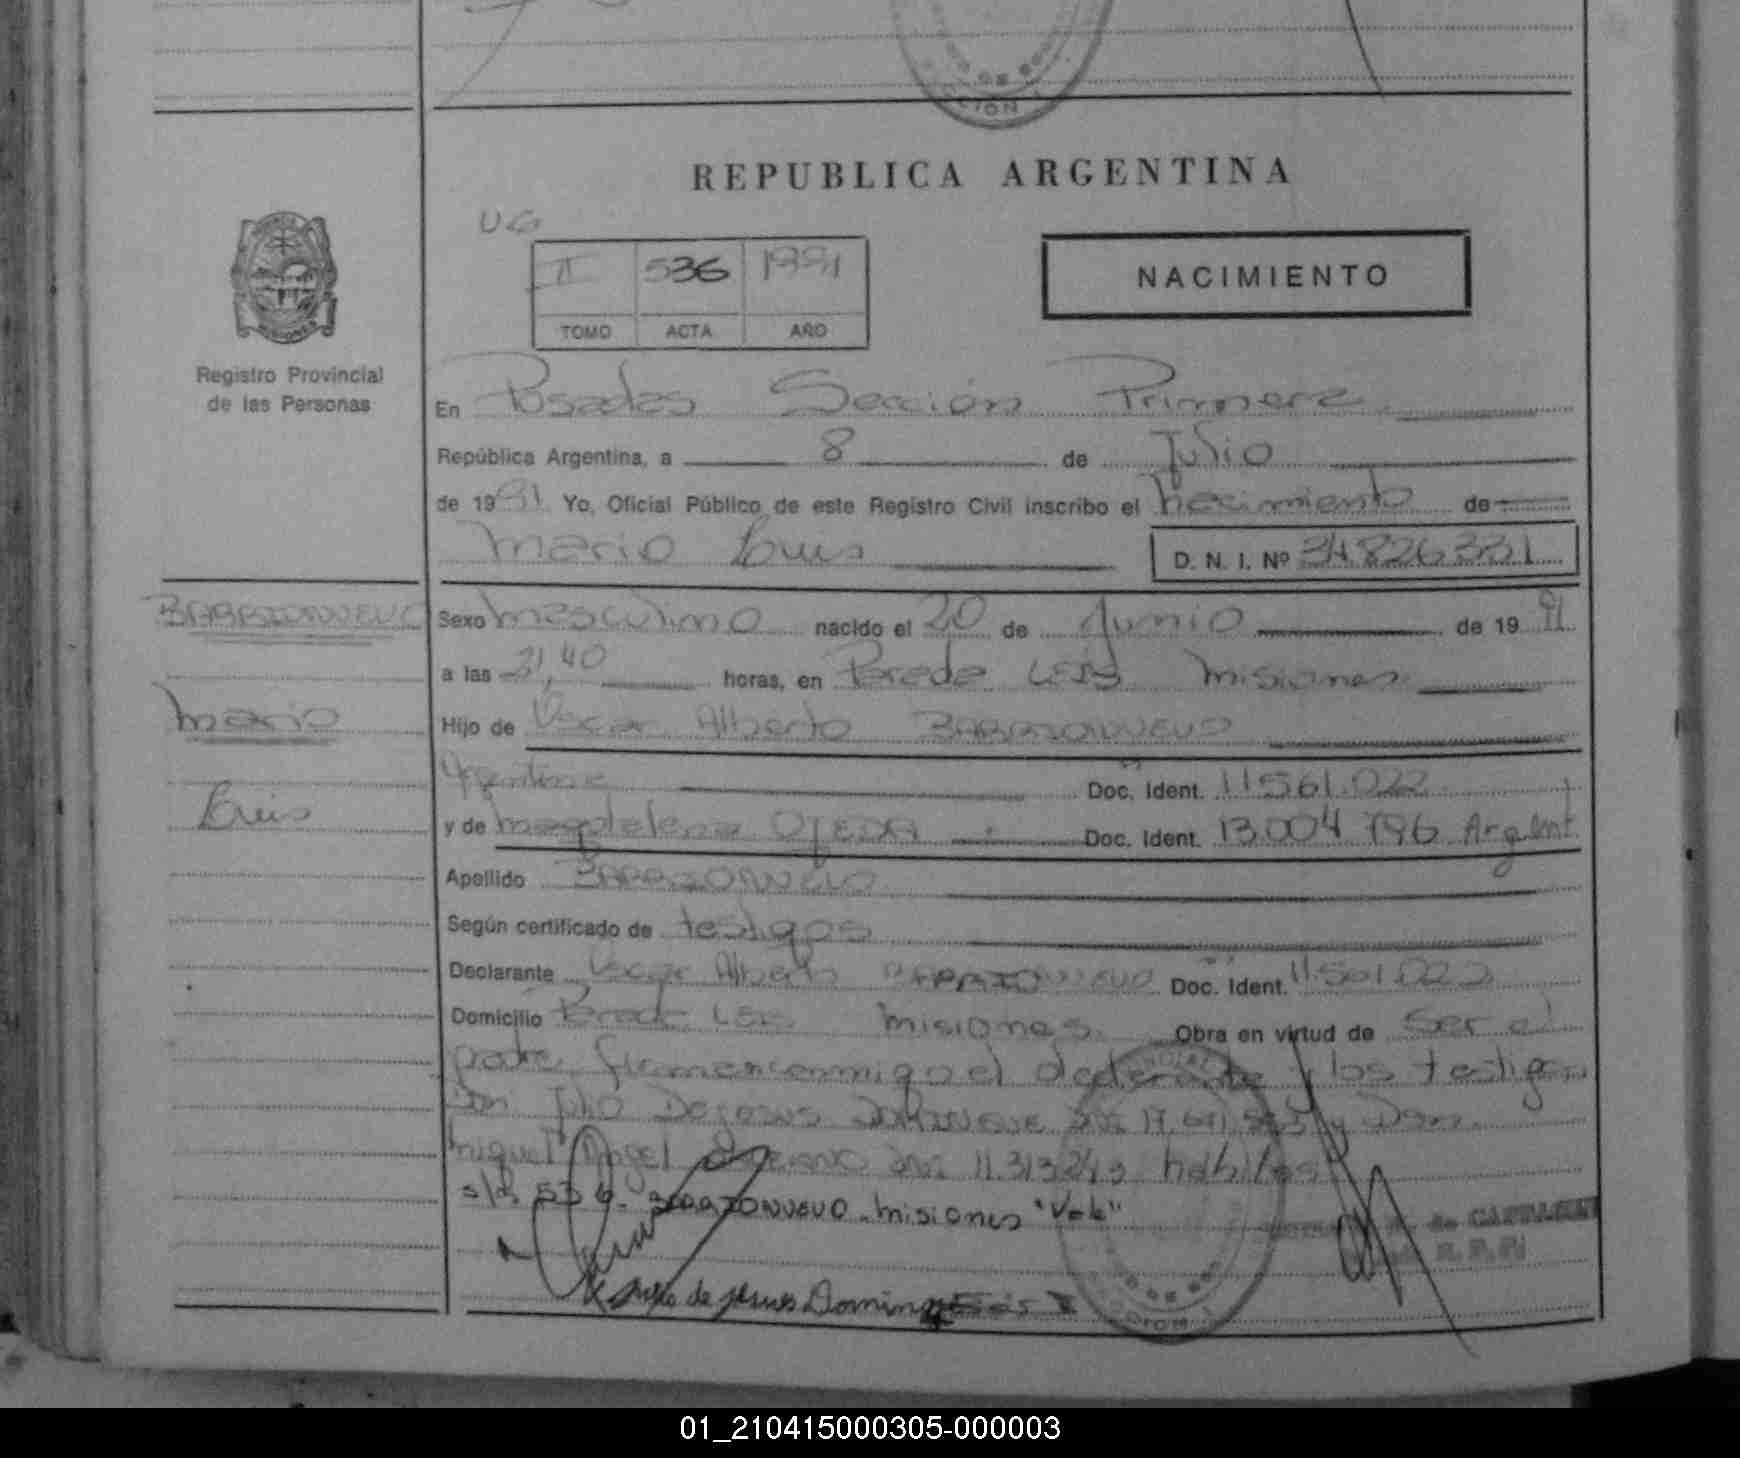 REPUBLICA ARGENTINA
UG
II 536 1991
TOMO ACTA AÑO
NACIMIENTO
Registro Provincial
de las Personas
En Posadas Sección Primera
República Argentina, a 8 de Julio
de 1991 Yo, Oficial Público de este Registro Civil inscribo el nacimiento de
Mario Luis D. N. I. Nº 34826331
BARRIONUEVO
Mario
Luis
Sexo masculino nacido el 20 de Junio de 1991
a las 21,40 horas, en Parada LEIS Misiones
Hijo de Oscar Alberto BARRIONUEVO
Argentina Doc. Ident. 11561.022
y de Magdalena OJEDA Doc. Ident. 13.004.796 Argent.
Apellido BARRIONUEVO
Según certificado de testigos
Declarante Oscar Alberto BARRIONUEVO Doc. Ident. 11561.022
Domicilio Parada LEIS Misiones Obra en virtud de Ser el
padre firman conmigo el declarante y los testigos
Don Julio DNI 17. y Don
Miguel Angel DNI 11.313.243 hábiles
s/r 536- BARRIONUEVO - Misiones "Vale"
Julio de Jesus
01_210415000305-000003